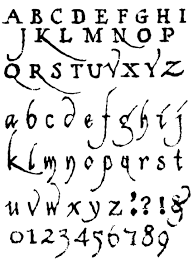 A B C D E F G H I
J K L M N O P
Q R S T U V X Y Z
a b c d e f g h i j
k l m n o p q r s t
u v w x y z ! ? ! &
0 1 2 3 4 5 6 7 8 9